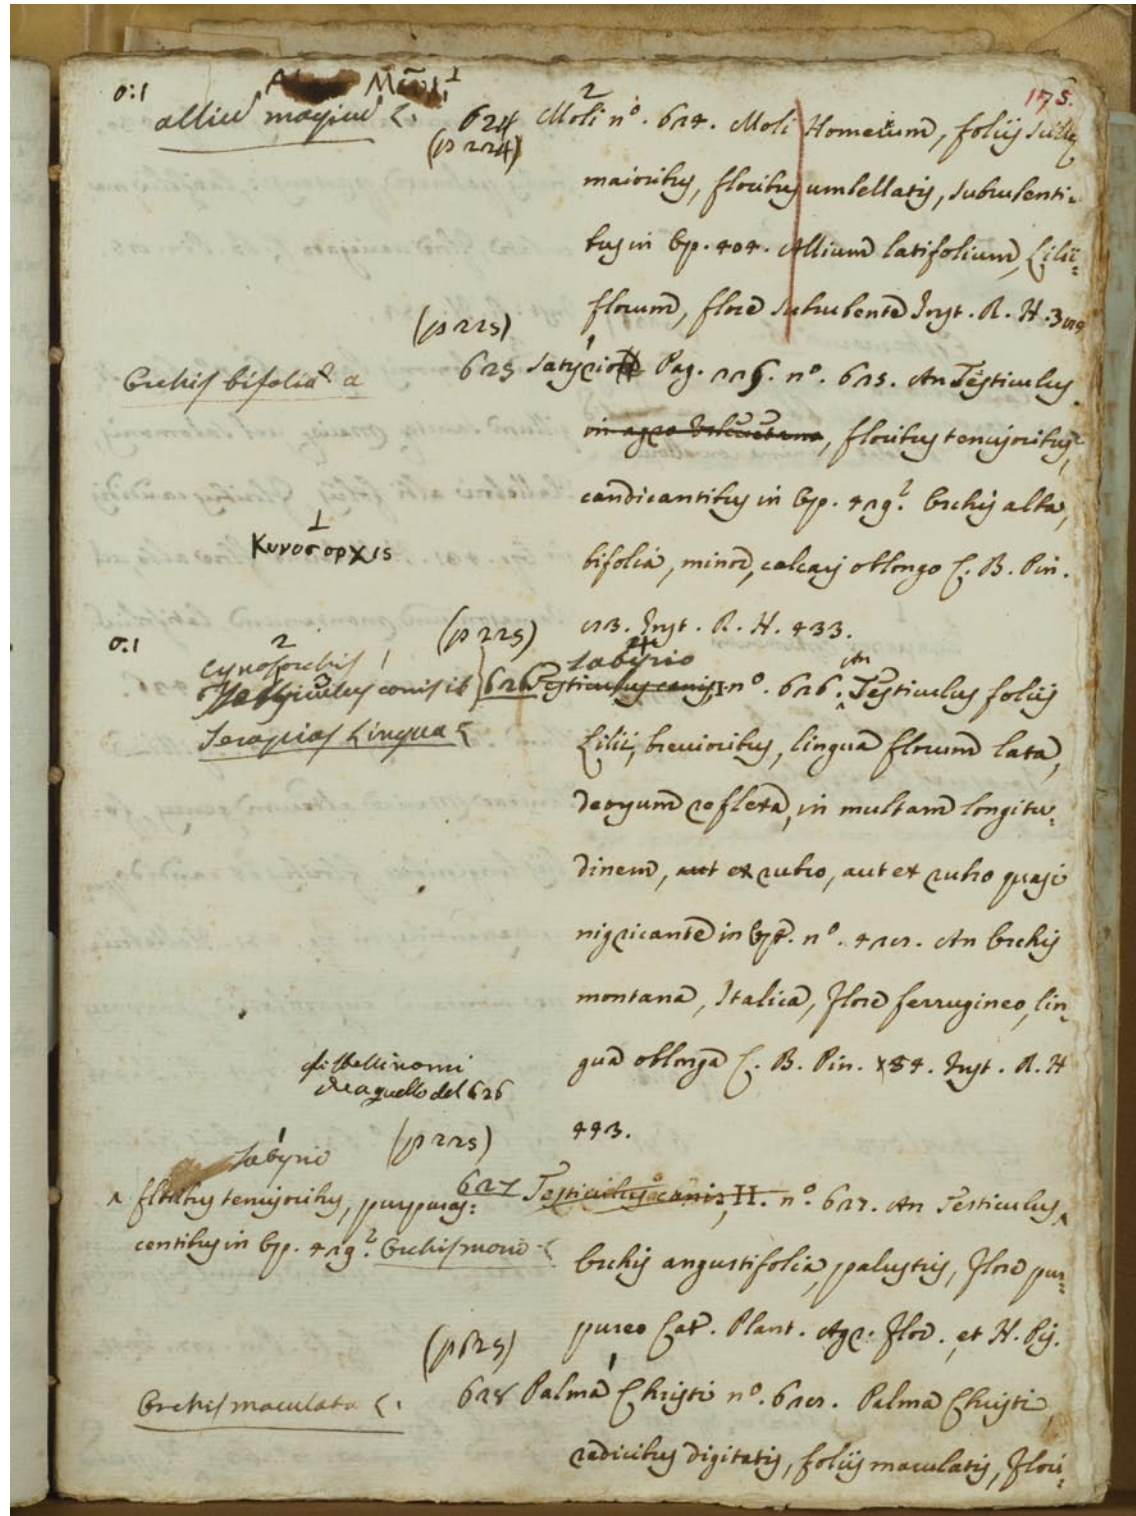 175.
o:1
Moli 1
alliũ magicũ L.
624
(p 224)
2
Moli n.º 624. Moli Homericum, folijs
maioribus, floribus umbellatis, subrubenti-
bus in Cæs. 404. Allium latifolium, Lilii-
florum, flore subrubente Inst. R. H.
(p 225)
Orchis bifolia a
625 Satyrio Pag. 225. n.º 625. An Testiculus
, floribus tenuioribus,
candicantibus in Cæs. 429.² Orchis alba,
1
Κυνοσορχις
bifolia, minor, calcari oblongo C. B. Pin.
Inst. R. H. 433.
(p 225)
o:1
2
cynosorchis 1
Testiculus canis ib
Serapias Lingua L
Satyrio
626 Testiculus canis I n.º 626. An Testiculus folijs
Lilii, brevioribus, lingua florum lata,
deorsum reflexa, in multam longitu-
dinem, aut ex rubro, aut ex rubro quasi
nigricante in Cæs. n.º An Orchis
montana, Italica, flore ferrugineo, lin-
gua oblonga C. B. Pin. 84. Inst. R. H
443.
nomi
aquello del 626
(p 225)
1
Satyrio
627 Testiculus canis, II. n.º 627. An Testiculus ^
^ floribus tenuioribus, purpuras-
centibus in Cæs. 429.² Orchis morio L
Orchis angustifolia, palustris, flore pur-
pureo Cat. Plant. Agr. Flor. et H. Pis.
(p 225)
1
Orchis maculata L.
628 Palma Christi n.º 628. Palma Christi,
radicibus digitatis, folijs maculatis, flori-